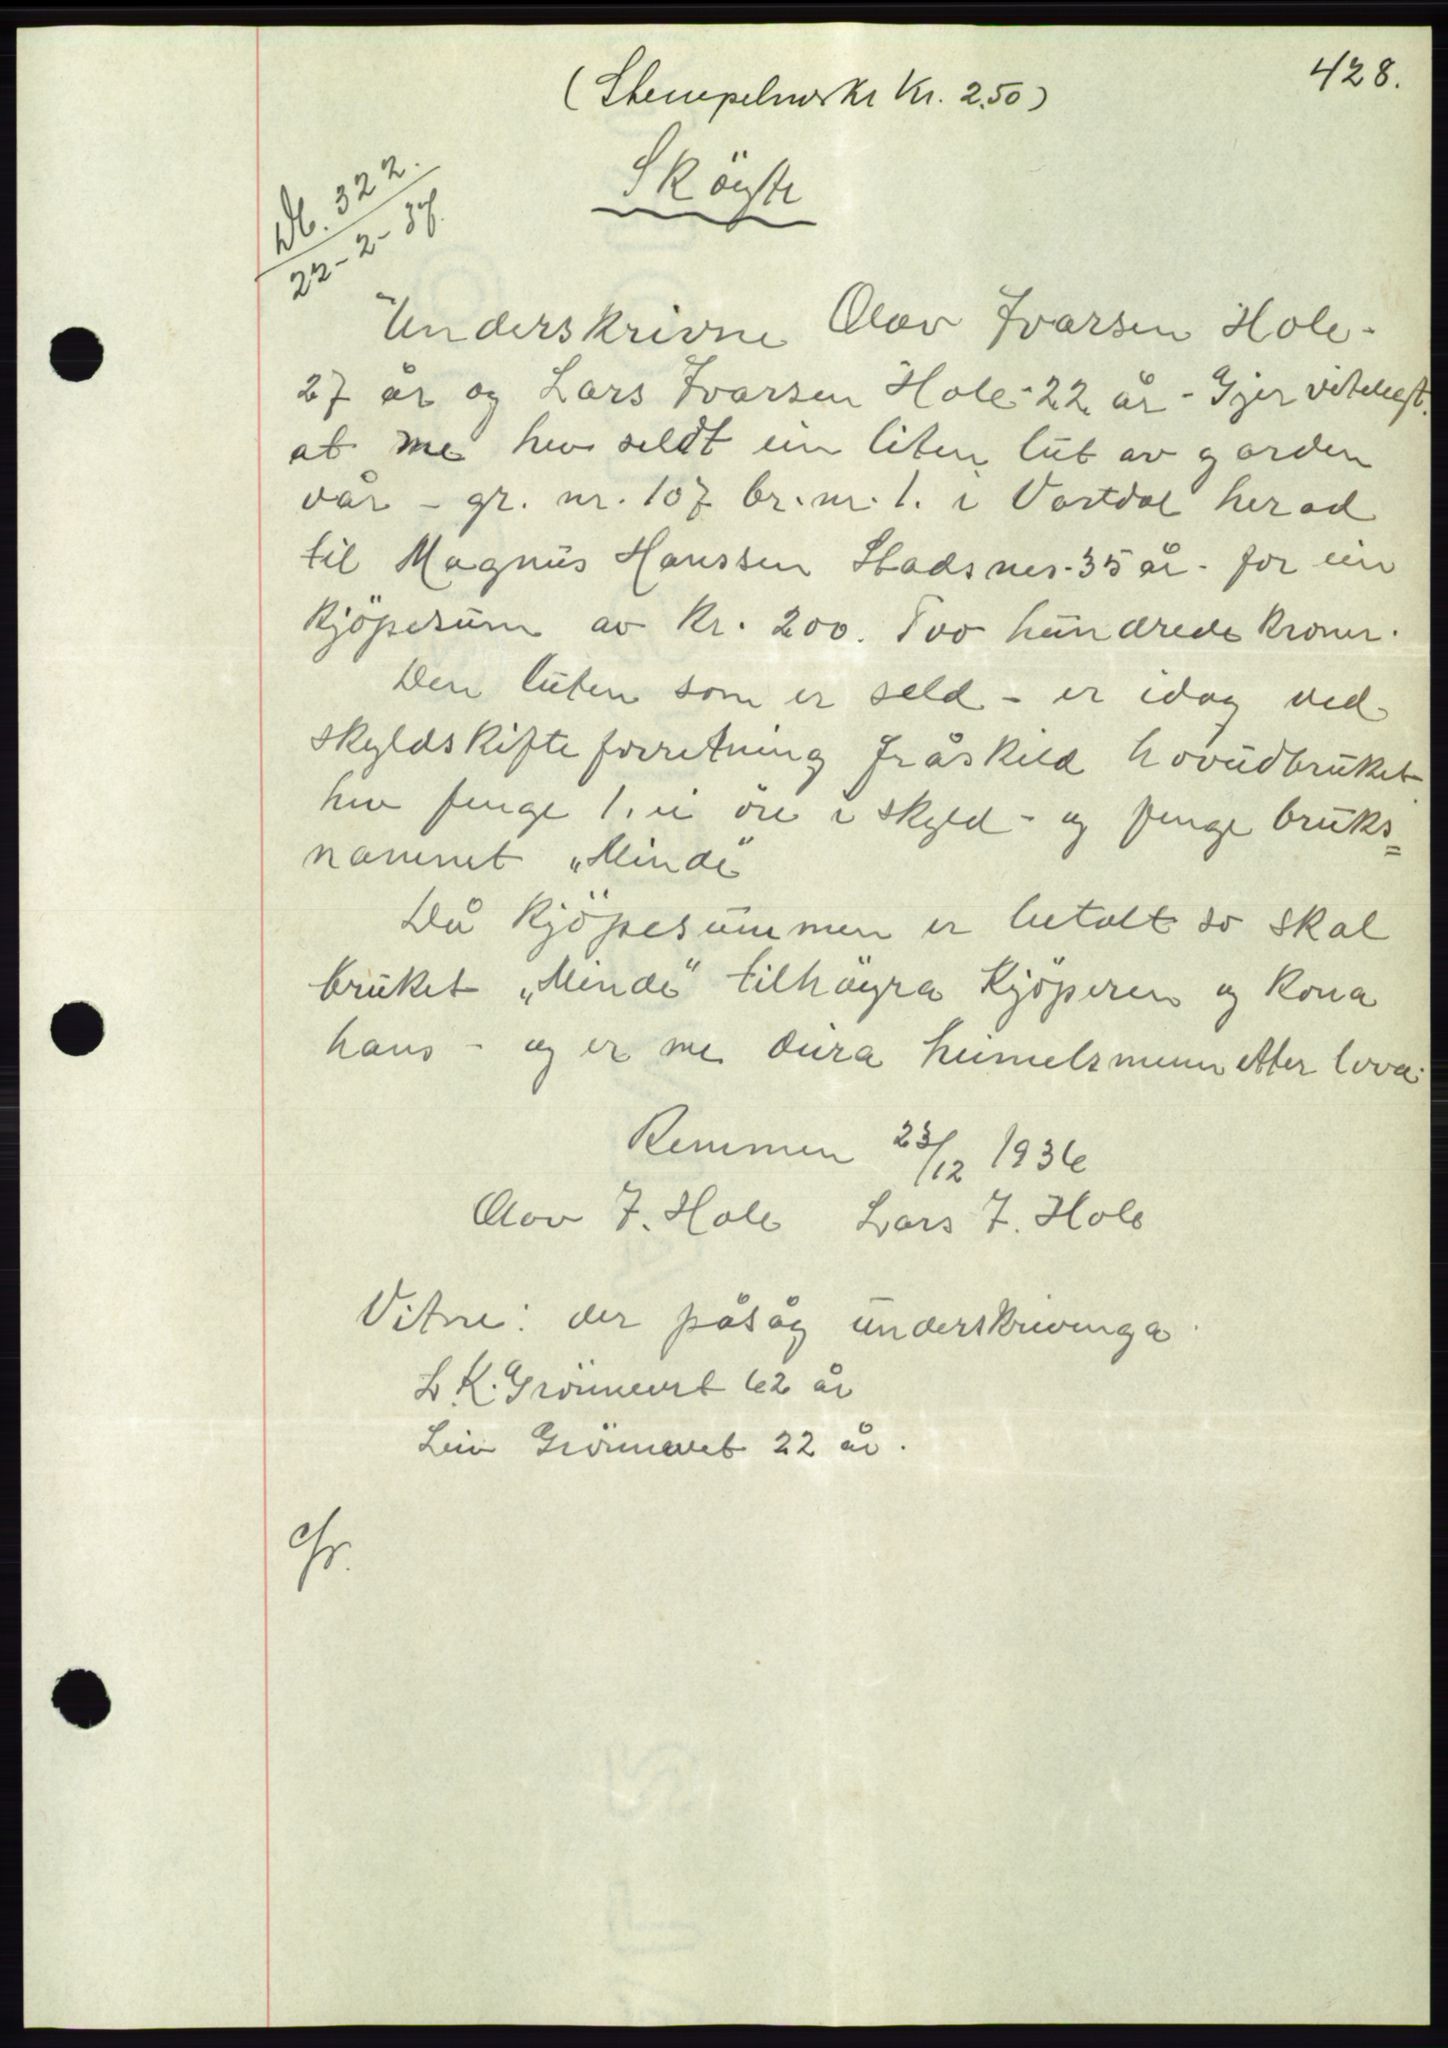 428.
(Stempelmerke Kr. 2,50)
Sköyte
Db. 322.
22-2-37.
Underskrivne Olav Ivarsen Hole -
27 år og Lars Ivarsen Hole - 22 år - Gjer vitelegt.
at me hev seldt ein liten lut av garden
vår - gr. nr. 107 br. nr. 1. i Vartdal herad
til Magnus Hanssen Stadsnes - 35 år - for ein
kjöpesum av kr. 200. Too hundrede kroner.
Den luten som er seld - er idag ved
skyldskifteforretning fråskild hovudbruket
hev fenge 1. ei öre i skyld - og fenge bruks=
namnet „Minde"
Då kjöpesummen er betalt so skal
bruket „Minde" tilhöyra kjöperen og kona
hans - og er me deira heimelsmenn etter lova.
Remmen 23/12 1936
Olav I. Hole Lars I. Hole
Vitne: der påsåg underskrivinga
L. K. Grönnevet 62 år
Leiv Grönnevet 22 år.